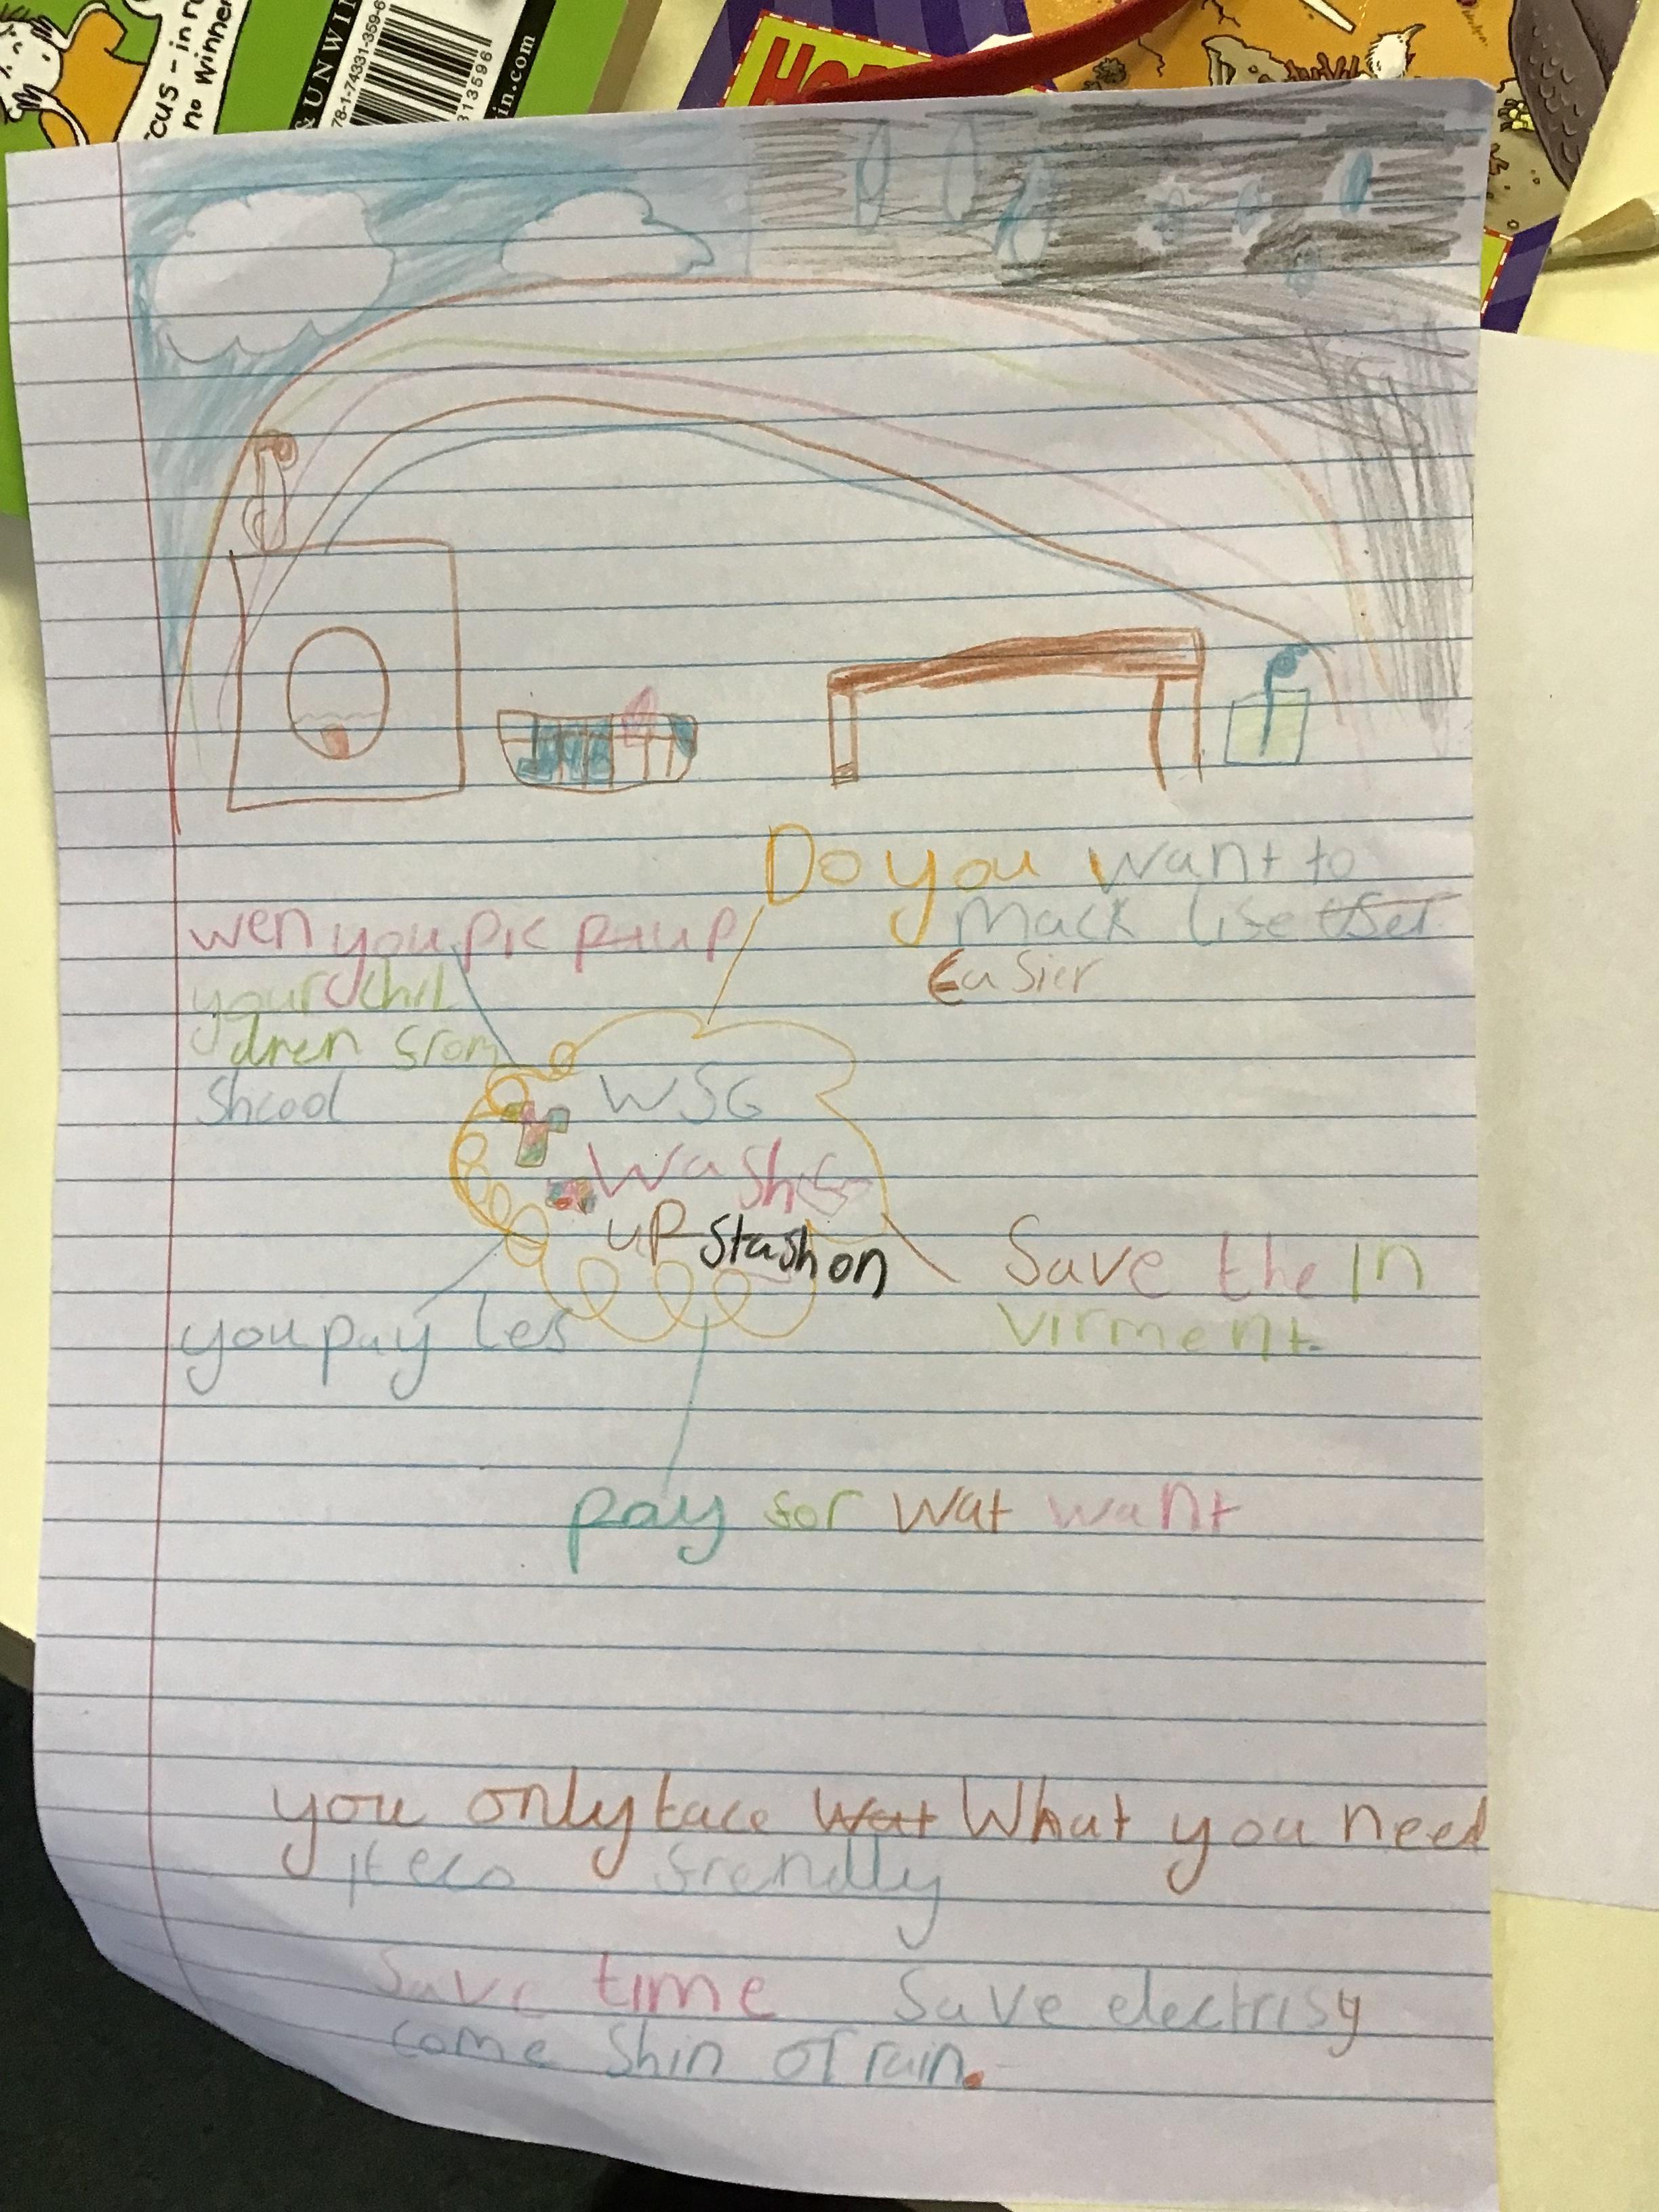 cus - in r
no winner
& UNWIN
78-1-74331-359-6
313596
in.com
Do you want to
mack life
Easier
wen you pic up
your chil
dren from
Shcool
WSG
Wash
up stashon
Save the in
virment.
you pay les
pay for wat want
you only tace wat What you need
it eco frendlly
Save time Save electrisy
come Shin or rain.